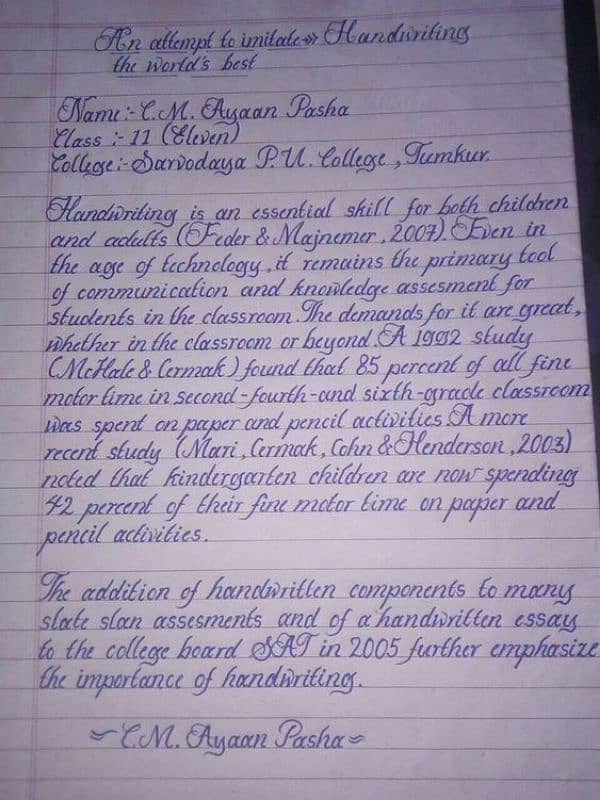 An attempt to imitate » Handwriting
the world's best
Name:- C.M. Ayaan Pasha
Class :- 11 (Eleven)
College:- Sarvodaya P.U. College, Tumkur.
Handwriting is an essential skill for both children
and adults (Feder & Majnemer, 2007). Even in
the age of technology, it remains the primary tool
of communication and knowledge assesment for
students in the classroom. The demands for it are great,
whether in the classroom or beyond. A 1992 study
(McHale & Cermak) found that 85 percent of all fine
motor time in second-fourth-and sixth-grade classroom
was spent on paper and pencil activities. A more
recent study (Mari, Cermak, Cohn & Henderson, 2003)
noted that kindergarten children are now spending
42 percent of their fine motor time on paper and
pencil activities.
The addition of handwritten components to many
state slan assesments and of a handwritten essay
to the college board SAT in 2005 further emphasize
the importance of handwriting.
~C.M. Ayaan Pasha≈